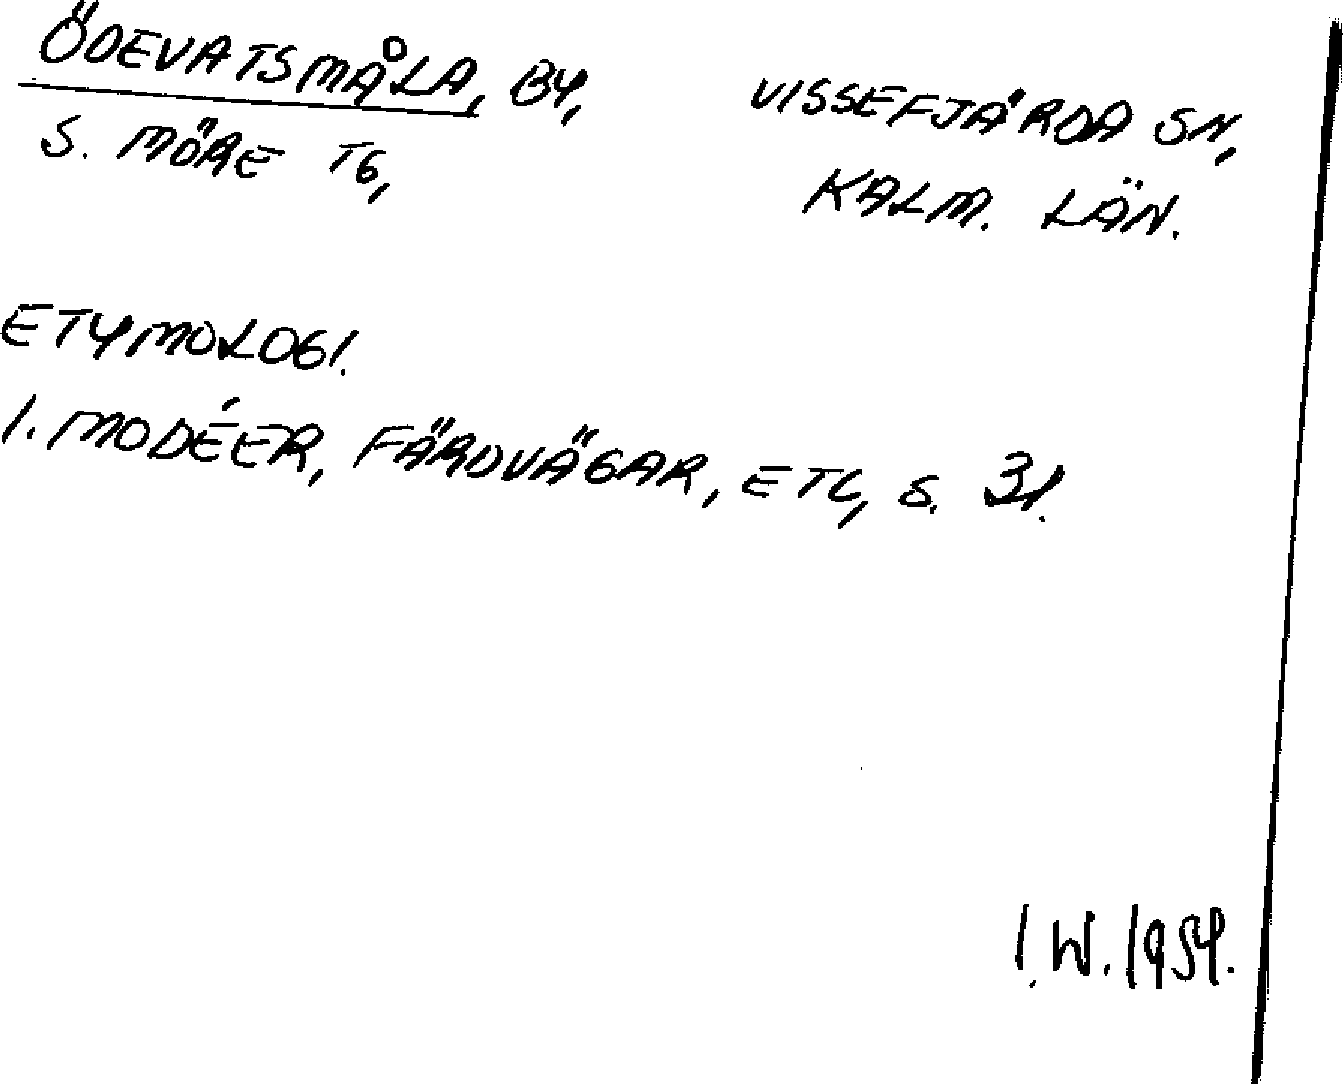 ÖDEVATSMÅLA, BY,
S. MÖRE TG,
VISSEFJÄRDA SN,
KALM. LÄN.
ETYMOLOGI.
I. MODÉER, FÄRDVÄGAR, ETC, S. 31.
I.W. 1954.